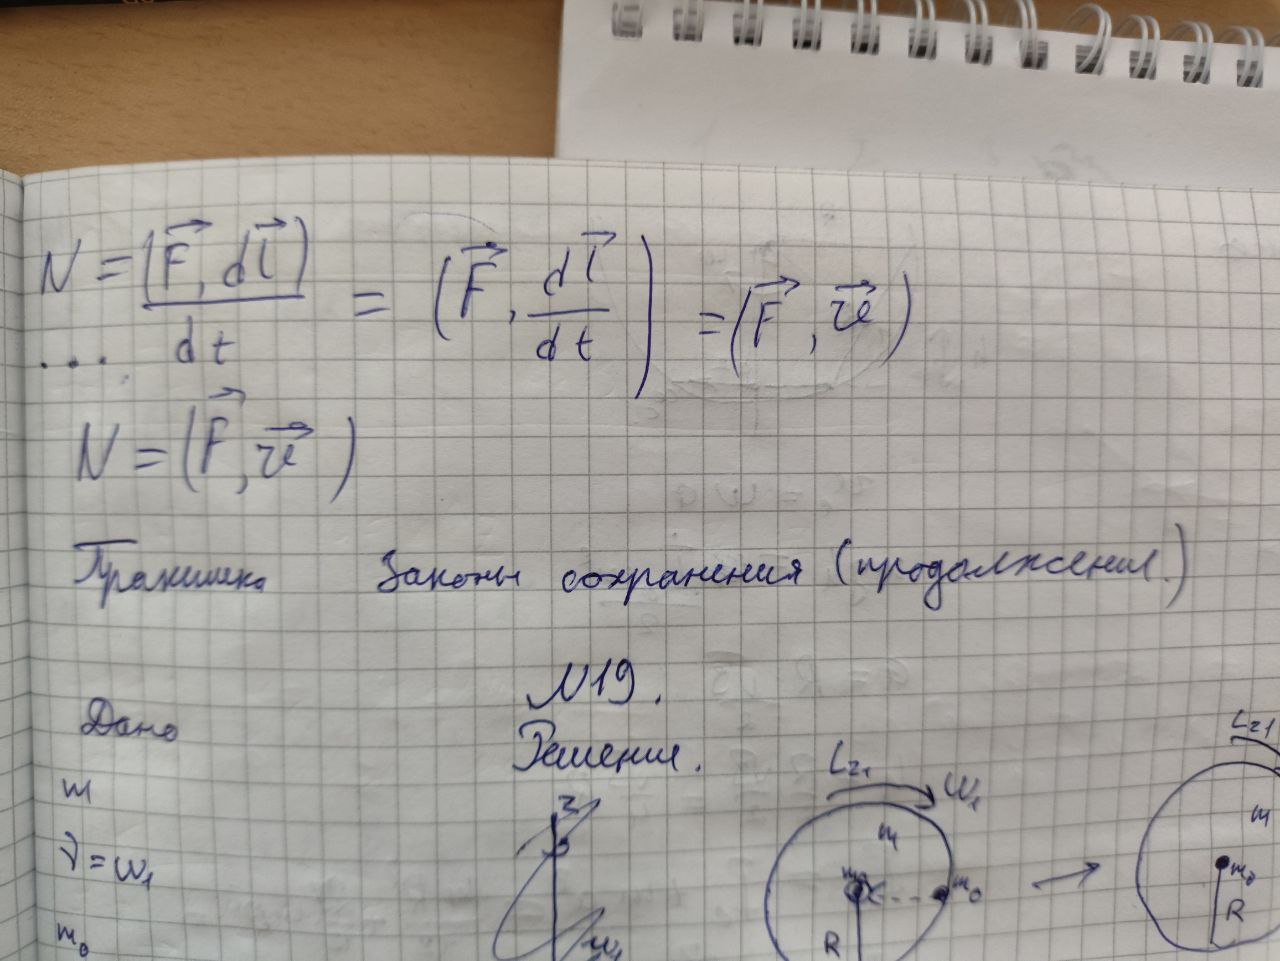 N = (F⃗, dl⃗)/dt = (F⃗, dl⃗/dt) = (F⃗, v⃗)
...
N = (F⃗, v⃗)
Практика Законы сохранения (продолжение.)
N19.
Дано Решение.
m
ν = ω₁
m₀
z
ω₁
L_z1 ω₁
m
m₀
R
→
L_z1
m
m₀
R